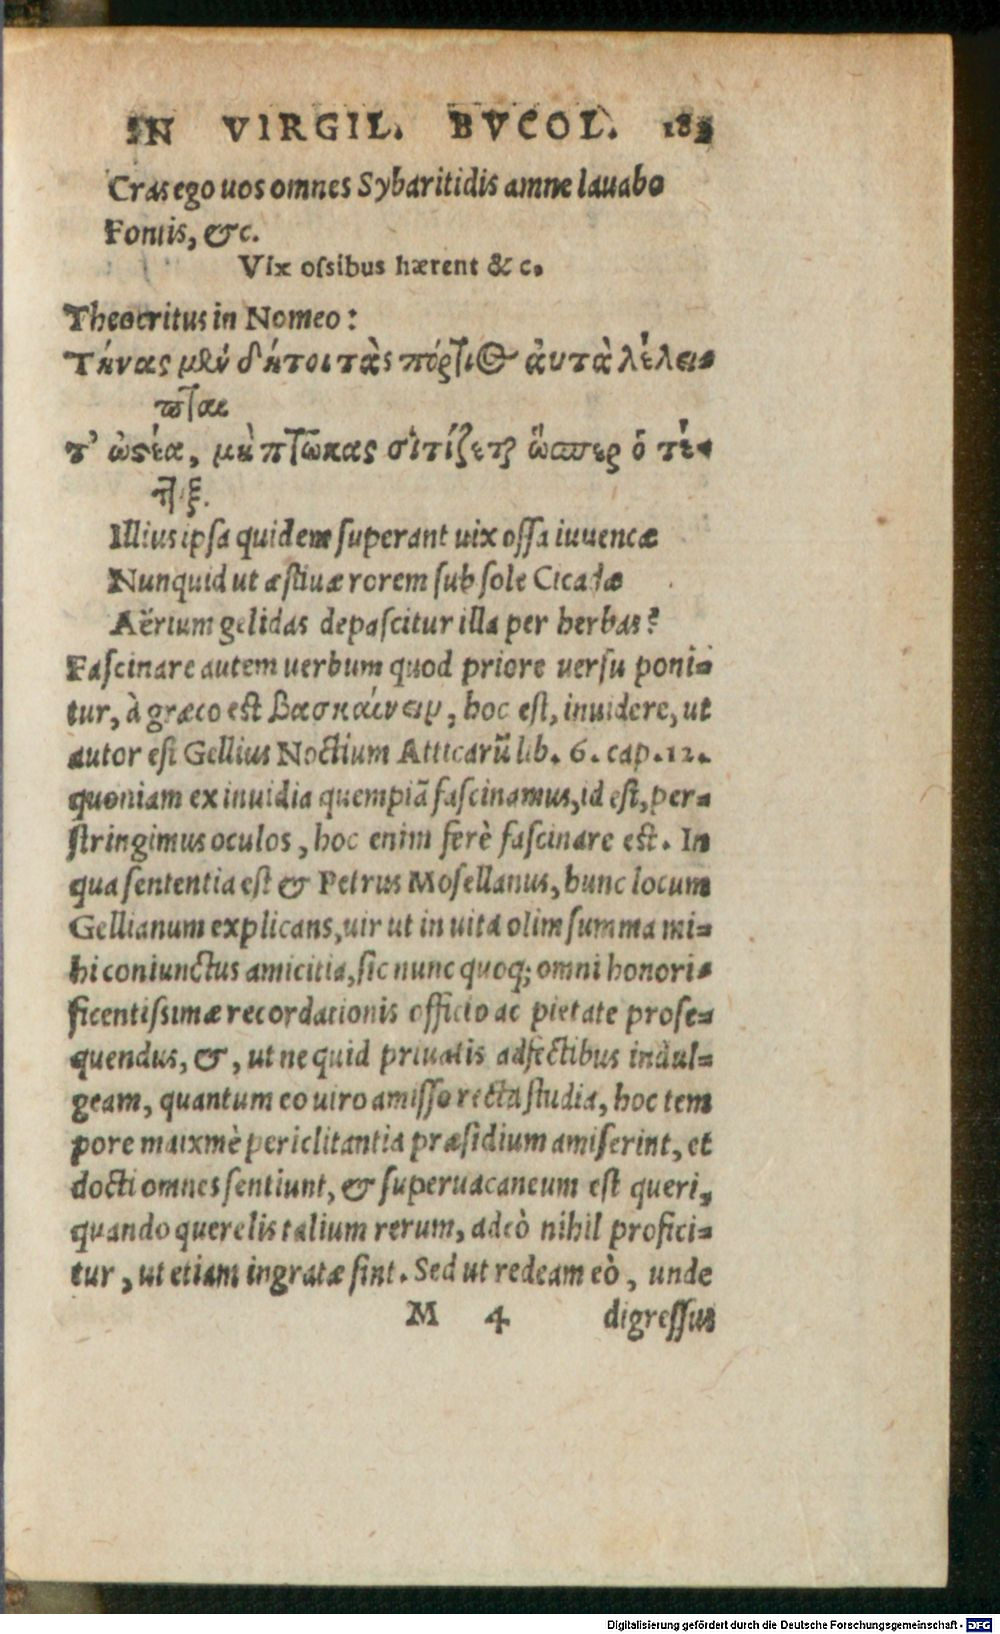 IN VIRGIL. BVCOL. 183
Cras ego uos omnes Sybaritidis amne lauabo
Fontis, &c.
Vix oſsibus hærent & c.
Theocritus in Nomeo:
Τήνας μὲν δήτοι τὰς πόρτιος ἀυτὰ λέλει-
πται
τ' ὠστέα, μὴ πτῶκας σιτίζεται ὥσπερ ὁ τέ-
ττιξ.
Illius ipſa quidem ſuperant uix oſſa iuuencæ
Nunquid ut æſtiuæ rorem ſub ſole Cicadæ
Aërium gelidas depaſcitur illa per herbas?
Faſcinare autem uerbum quod priore uerſu poni-
tur, à græco est βασκαίνειν, hoc eſt, inuidere, ut
autor eſt Gellius Noctium Atticarũ lib. 6. cap. 12.
quoniam ex inuidia quempiã faſcinamus, id eſt, per-
ſtringimus oculos, hoc enim ferè faſcinare est. In
qua ſententia est & Petrus Moſellanus, hunc locum
Gellianum explicans, uir ut in uita olim ſumma mi-
hi coniunctus amicitia, ſic nunc quoq; omni honori-
ficentiſsimæ recordationis officio ac pietate proſe-
quendus, &, ut ne quid priuatis adfectibus indul-
geam, quantum eo uiro amiſſo recta ſtudia, hoc tem
pore maixmè periclitantia præſidium amiſerint, et
docti omnes ſentiunt, & ſuperuacaneum est queri,
quando querelis talium rerum, adeò nihil profici-
tur, ut etiam ingratæ ſint. Sed ut redeam eò, unde
M 4 digreſſus
Digitalisierung gefördert durch die Deutsche Forschungsgemeinschaft - DFG